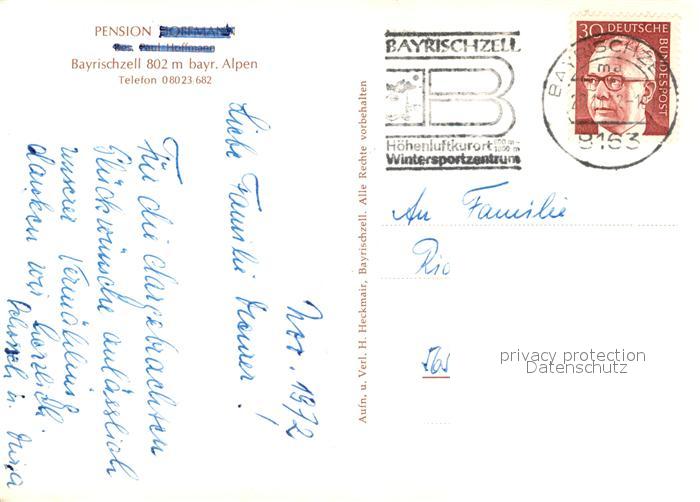 PENSION HOFFMANN
Bes. Paul Hoffmann
Bayrischzell 802 m bayr. Alpen
Telefon 08023/682
Nov. 1972
Liebe Familie
Für die dargebrachten
Glückwünsche anlässlich
unserer Vermählung
danken wir herzlich
u.
Aufn. u. Verl. H. Heckmair, Bayrischzell. Alle Rechte vorbehalten
BAYRISCHZELL
B
Höhenluftkurort 800 m -
Wintersportzentrum
30 DEUTSCHE BUNDESPOST
BAYRISCHZELL
ma
8163
An Familie
privacy protection
Datenschutz